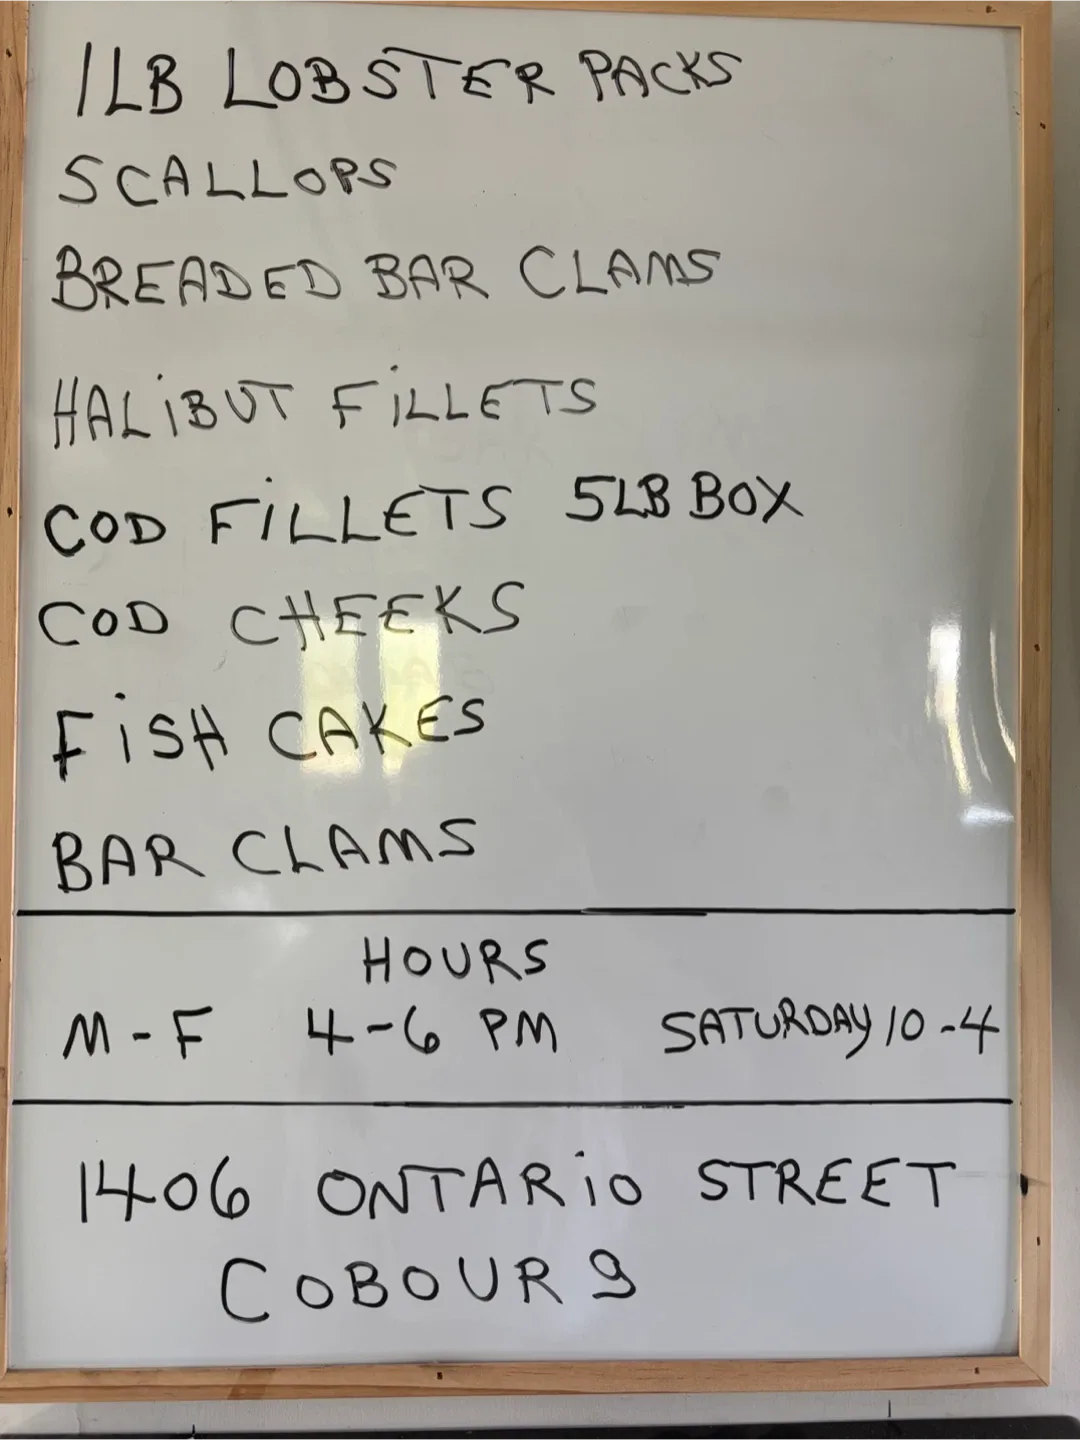 1LB LOBSTER PACKS
SCALLOPS
BREADED BAR CLAMS
HALiBUT FiLLETS
COD FiLLETS 5LB BOX
COD CHEEKS
FiSH CAKES
BAR CLAMS
HOURS
M-F 4-6 PM SATURDAY 10-4
1406 ONTARiO STREET
COBOURg